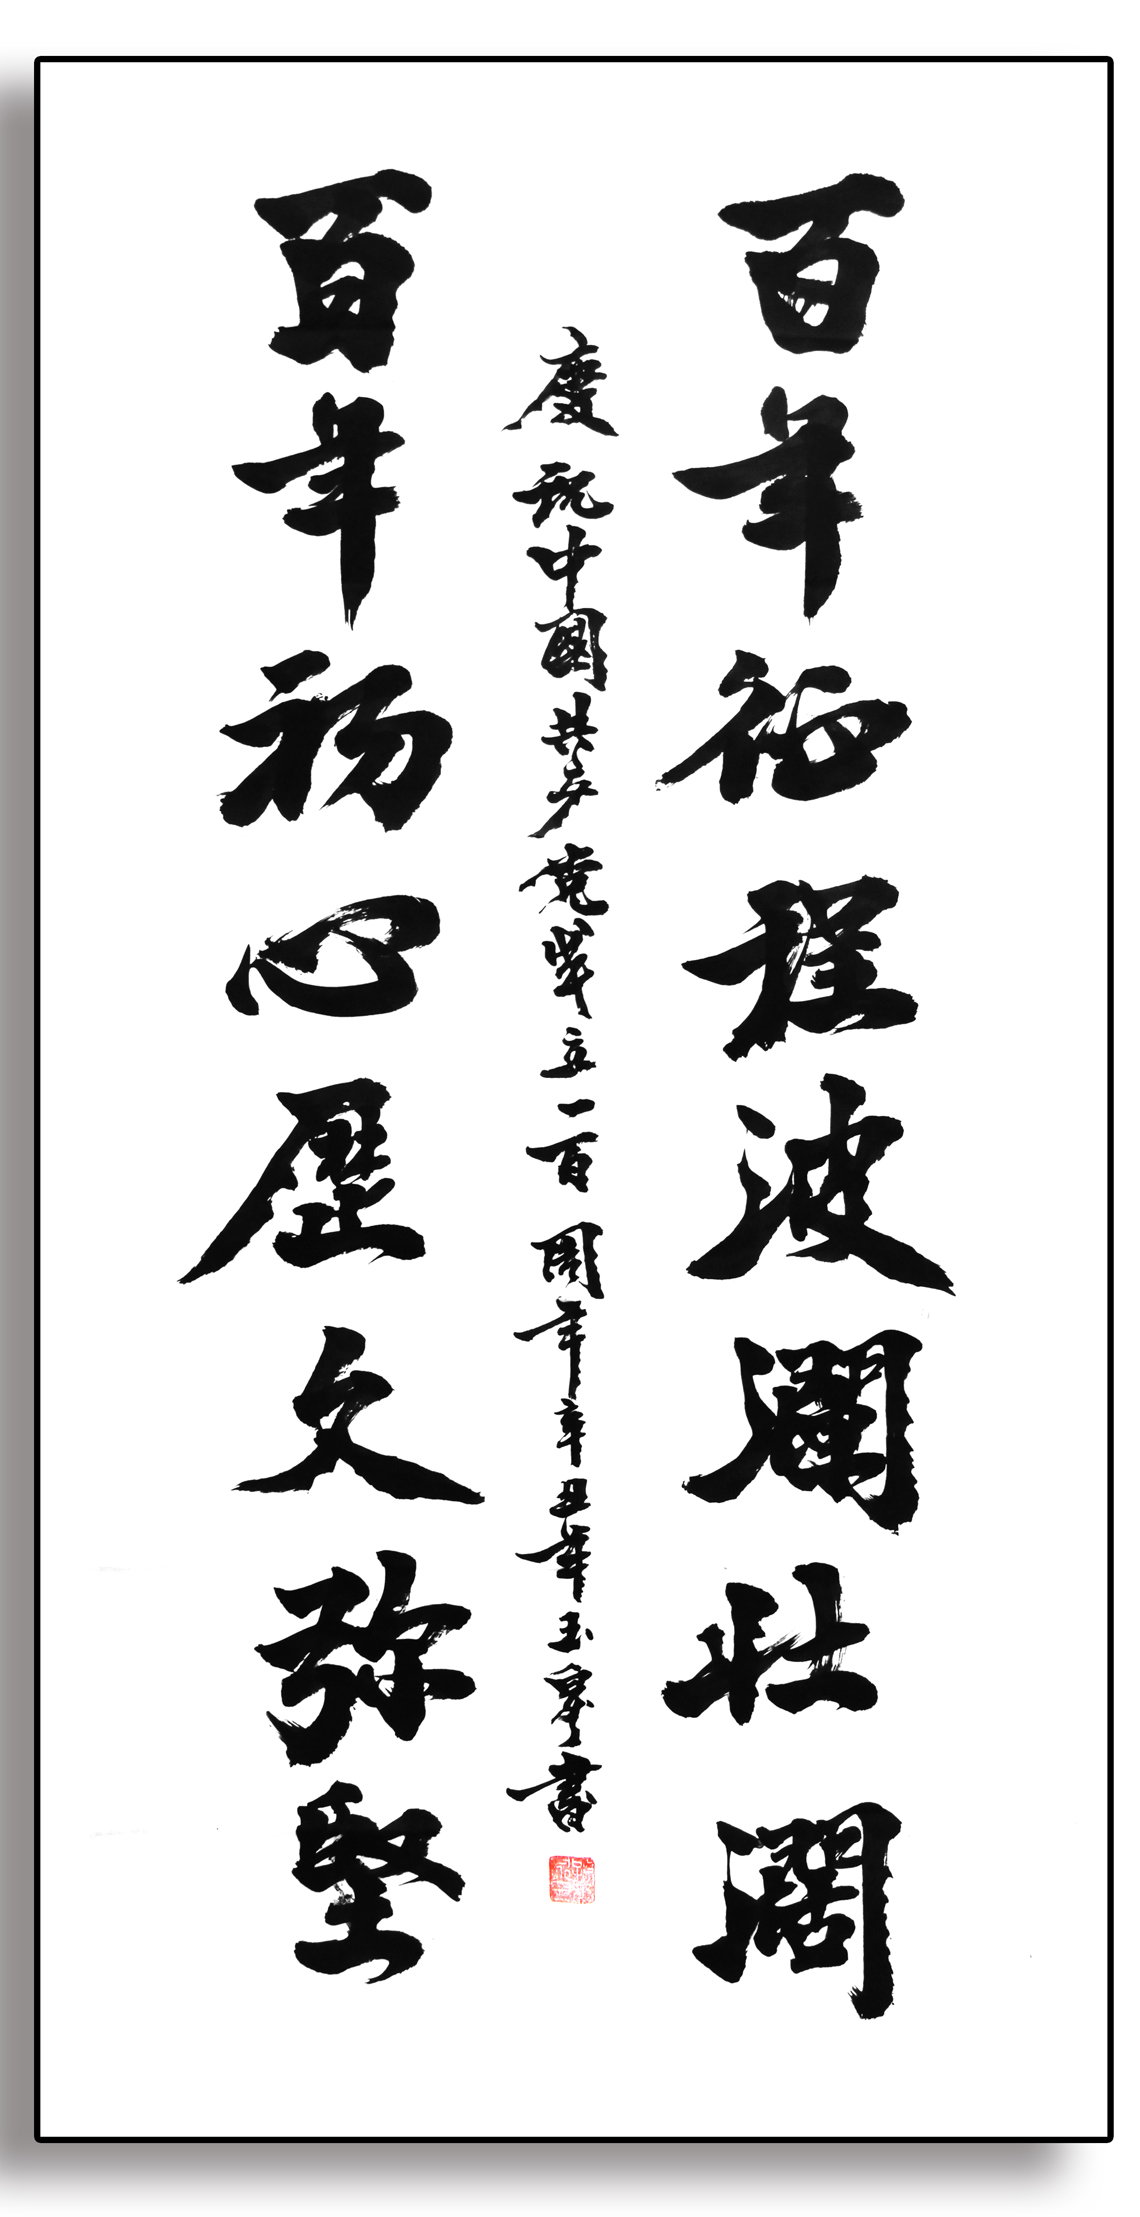 百年征程波瀾壮濶
百年初心歷久弥堅
慶祝中國共产党成立一百周年辛丑年玉皋書